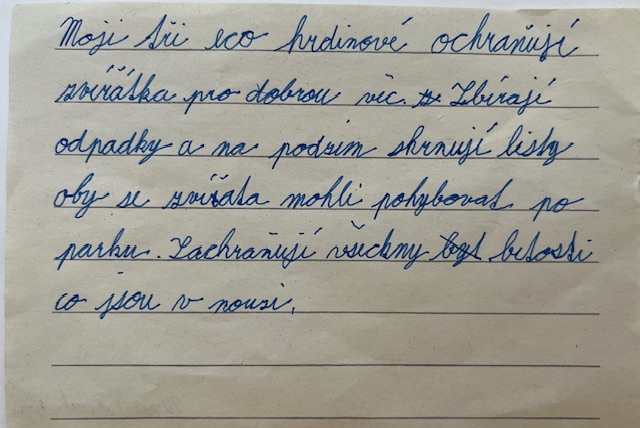 Moji tři eco hrdinové ochraňují
zvířátka pro dobrou věc. z Zbírají
odpadky a na podzim shrnují listy
oby se zvířata mohli pohybovat po
parku. Zachraňují všechny byt bitosti
co jsou v nousi.